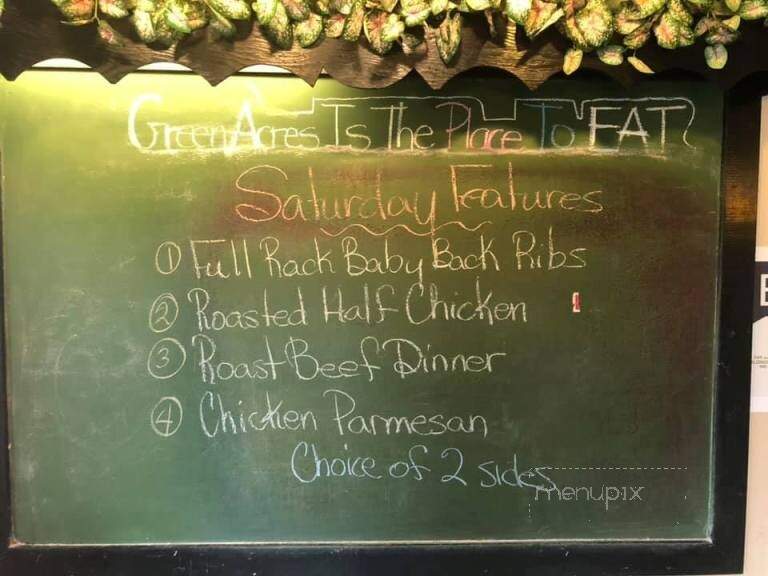 Green Acres Is The Place To EAT
Saturday Features
① Full Rack Baby Back Ribs
② Roasted Half Chicken
③ Roast Beef Dinner
④ Chicken Parmesan
Choice of 2 sides
menupix